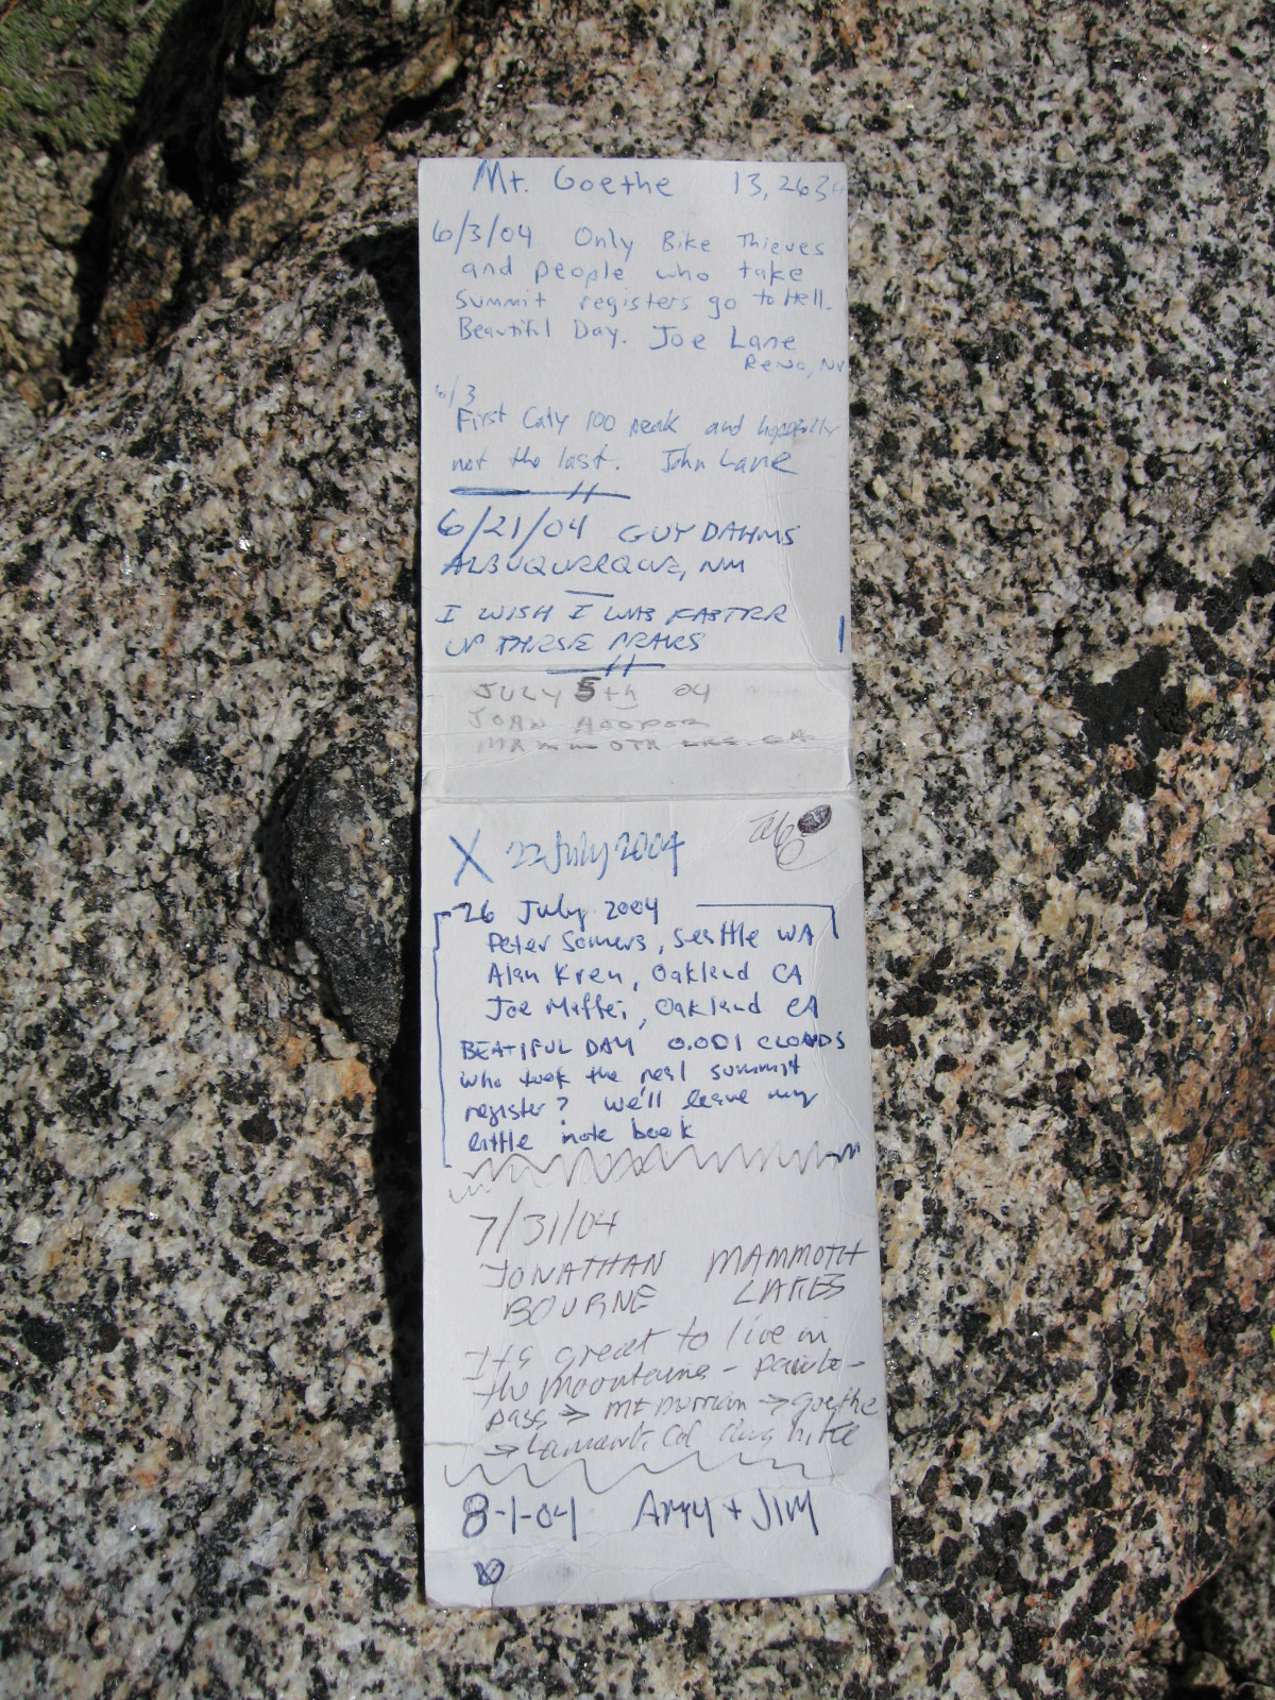 Mt. Goethe 13,263
6/3/04 Only Bike Thieves
and people who take
summit registers go to Hell.
Beautiful Day. Joe Lane
Reno, NV
6/3
First Caly 100 peak and hopefully
not the last. John Lane
6/21/04 GUY DAHMS
ALBUQUERQUE, NM
I WISH I WAS FASTER
UP THESE PEAKS
JULY 5th 04
JOAN HOOPER
MAMMOTH LKS. CA.
X 22 July 2004
26 July 2004
Peter Somers, Seattle WA
Alan Kren, Oakland CA
Joe Maffei, Oakland CA
BEATIFUL DAY 0.001 CLOUDS
who took the real summit
register? we'll leave my
little note book
7/31/04
JONATHAN MAMMOTH
BOURNE LAKES
Its great to live in
the mountains - paiute
pass → mt → goethe
→ Lamarck Col hike
8-1-04 AMY + JIM